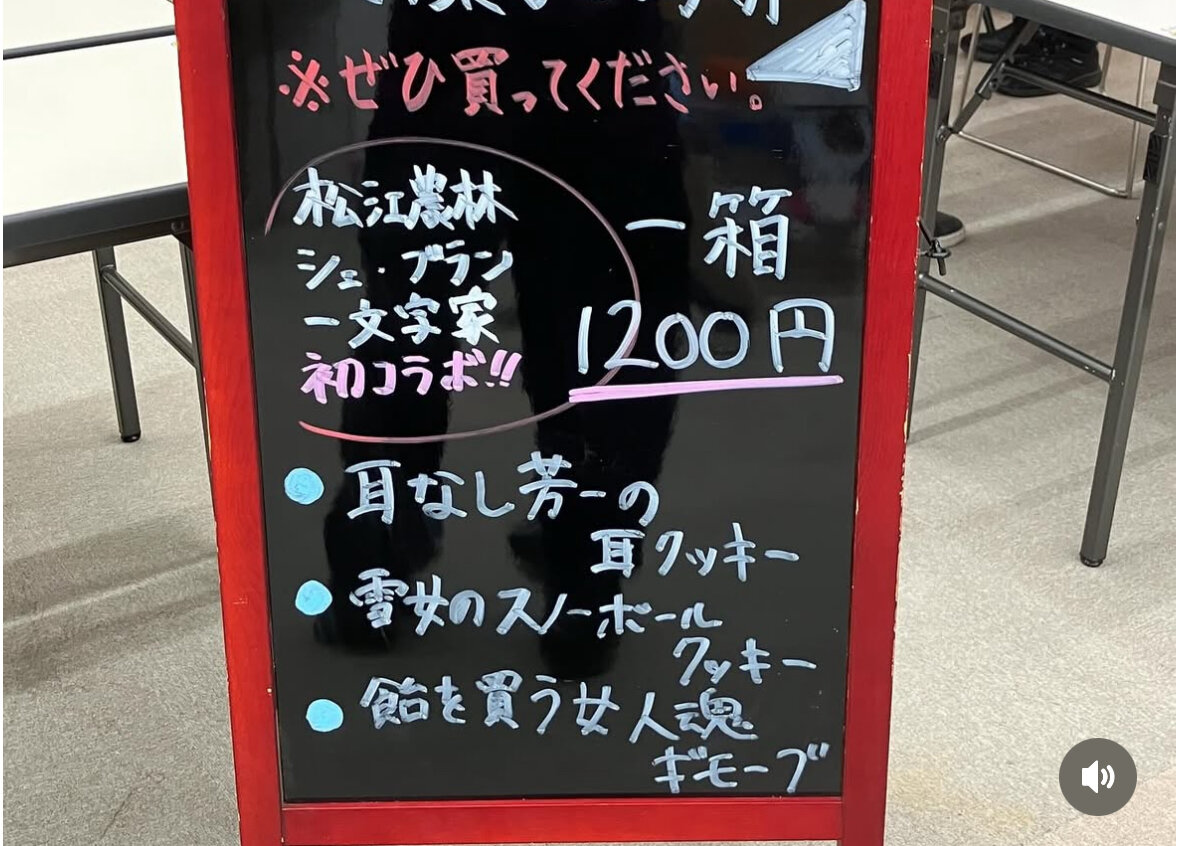 ※ぜひ買ってください。
松江農林
シェ・ブラン
一文字家
初コラボ!!
一箱
1200円
耳なし芳一の
耳クッキー
雪女のスノーボール
クッキー
飴を買う女人魂
ギモーブ